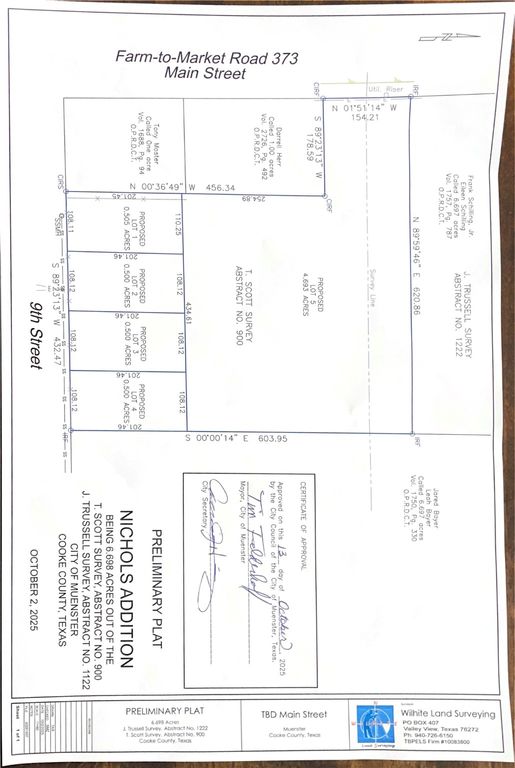 Farm-to-Market Road 373
Main Street
Util. Riser
CIRF
IRF
N 01°51'14" W
154.21
S 89°23'13" W
178.59
CIRF
Darrell Herr
Called 1.00 acres
Vol. 2726, Pg. 492
O.P.R.D.C.T.
Tony Moster
Called One acre
Vol. 1688, Pg. 94
O.P.R.D.C.T.
Frank Schilling, Jr.
Eileen Schilling
Called 6.697 acres
Vol. 1757, Pg. 787
O.P.R.D.C.T.
J. TRUSSELL SURVEY
ABSTRACT NO. 1222
N 89°59'46" E 620.86
Survey Line
CIRS
N 00°36'49" W 456.34
201.45
254.89
PROPOSED
LOT 1
0.505 ACRES
110.25
108.11
201.46
PROPOSED
LOT 2
0.500 ACRES
108.12
108.12
201.46
PROPOSED
LOT 3
0.500 ACRES
108.12
108.12
201.46
PROPOSED
LOT 4
0.500 ACRES
108.12
108.12
201.46
434.61
T. SCOTT SURVEY
ABSTRACT NO. 900
PROPOSED
LOT 5
4.693 ACRES
SSMH
SS
S 89°23'13" W 432.47
9th Street
IRF
IRF
S 00°00'14" E 603.95
Jared Bayer
Leah Bayer
Called 6.697 acres
Vol. 1750, Pg. 330
O.P.R.D.C.T.
CERTIFICATE OF APPROVAL
Approved on this 13 day of October, 2025
by the City Council of the City of Muenster, Texas.
Mayor, City of Muenster
City Secretary
PRELIMINARY PLAT
NICHOLS ADDITION
BEING 6.698 ACRES OUT OF THE
T. SCOTT SURVEY, ABSTRACT NO. 900
J. TRUSSELL SURVEY, ABSTRACT NO. 1122
CITY OF MUENSTER
COOKE COUNTY, TEXAS
OCTOBER 2, 2025
Sheet
1 of 1
PRELIMINARY PLAT
6.698 Acres
J. Trussell Survey, Abstract No. 1222
T. Scott Survey, Abstract No. 900
Cooke County, Texas
TBD Main Street
Muenster
Cooke County, Texas
Land Surveying
Wilhite Land Surveying
PO BOX 407
Valley View, Texas 76272
Ph. 940-726-6150
TBPELS Firm #10083800